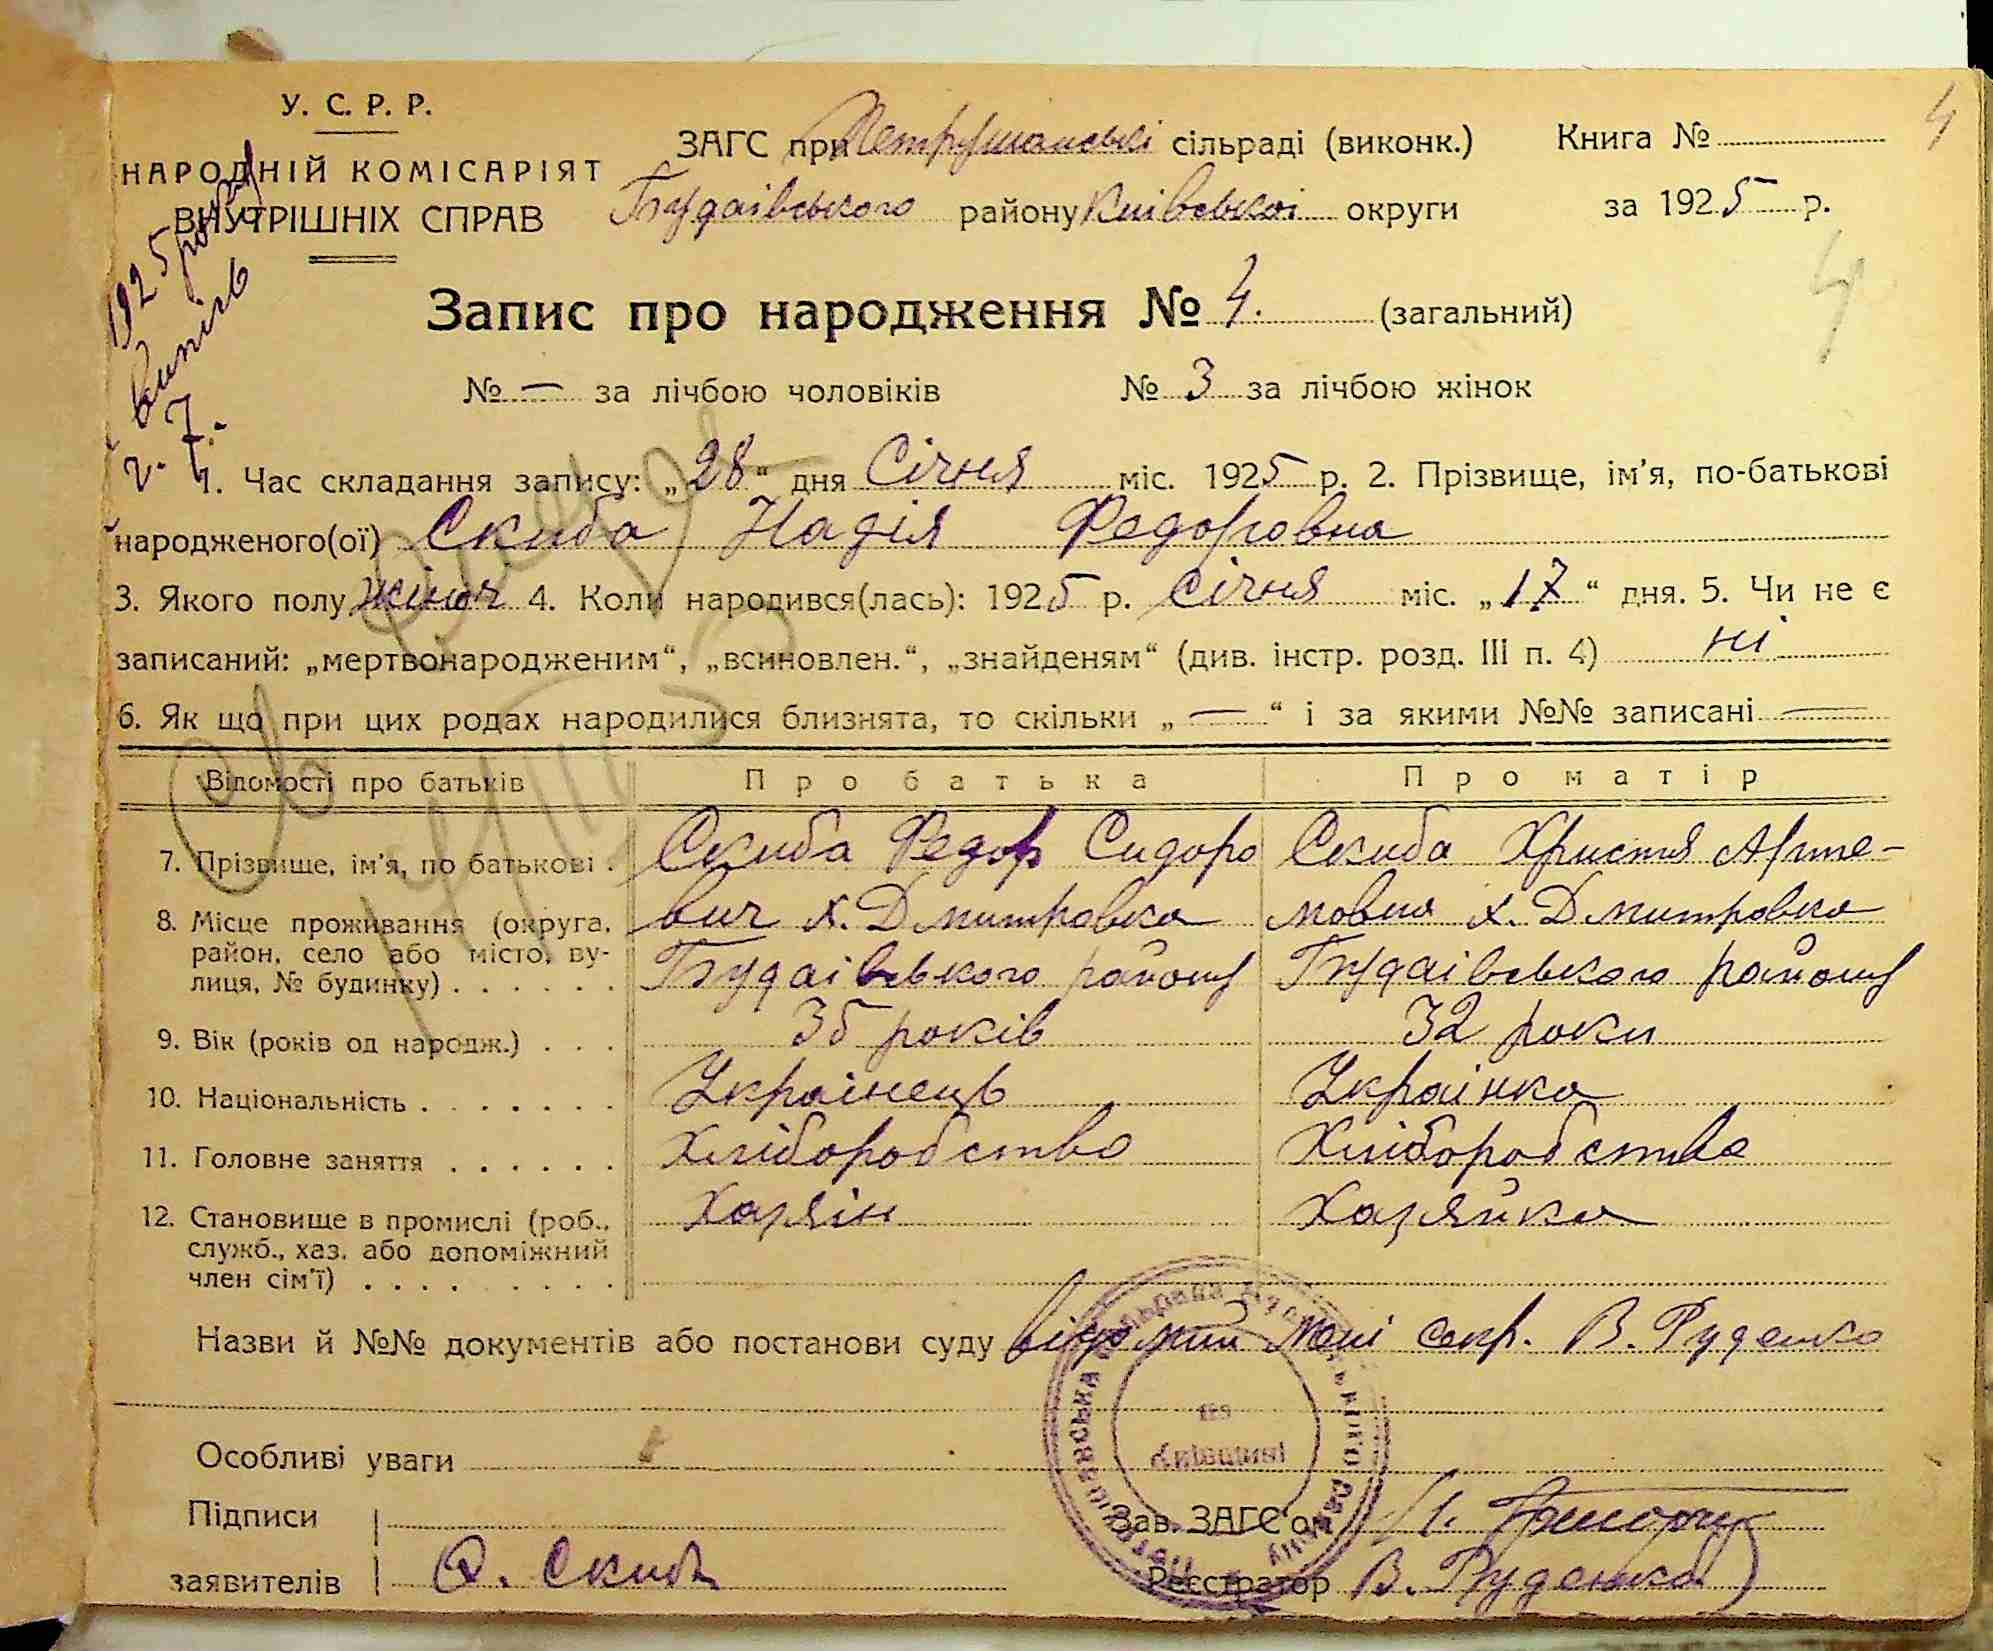 У. С. Р. Р.
НАРОДНІЙ КОМІСАРІЯТ
ВНУТРІШНІХ СПРАВ
ЗАГС при Петрушанські сільраді (виконк.)
Будаівського району Киівськоі округи
Книга №
за 1925 р.
4
4
1925 року
Запис про народження № 4. (загальний)
№ — за лічбою чоловіків № 3 за лічбою жінок
1. Час складання запису: „28“ дня Січня міс. 1925 р. 2. Прізвище, ім'я, по-батькові
народженого(ої) Скиба Надія Федоровна
3. Якого полу жіноч 4. Коли народився(лась): 1925 р. Січня міс. „17“ дня. 5. Чи не є
записаний: „мертвонародженим“, „всиновлен.“, „знайденям“ (див. інстр. розд. III п. 4) ні
6. Як що при цих родах народилися близнята, то скільки „—“ і за якими №№ записані —
Відомості про батьків Про батька Про матір
7. Прізвище, ім'я, по батькові . Скиба Федор Сидоро Скиба Христя Арте-
8. Місце проживання (округа, вич х. Дмитровка мовна х. Дмитровка
район, село або місто, ву- Будаівського району Будаівського району
лиця, № будинку) . . . . . .
9. Вік (років од народж.) . . . 35 років 32 роки
10. Національність . . . . . . . Украінець Украінка
11. Головне заняття . . . . . . Хліборобство Хліборобства
12. Становище в промислі (роб., Хазяін Хазяйка
служб., хаз. або допоміжний
член сім'ї) . . . . . . . . .
Назви й №№ документів або постанови суду відомий мені секр. В. Руденко
Особливі уваги
Підписи
Зав. ЗАГС'ом
заявителів Ф. Скиба
Реєстратор В. Руденко